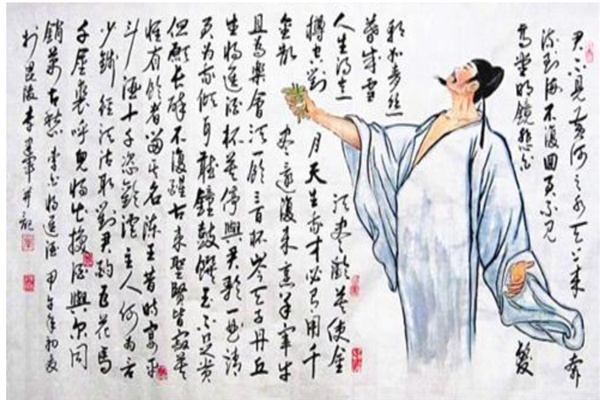 君不見黄河之水天上來奔
流到海不復回君不見
高堂明鏡悲白髮
朝如青丝
暮成雪
人生得意須盡歡莫使金
樽空對月天生我才必有用千
金散盡還復來烹羊宰牛
且為樂會須一飲三百杯岑夫子丹丘
生将進酒杯莫停與君歌一曲請
君为我倾耳聽鐘鼓饌玉不足贵
但願長醉不復醒古來聖賢皆寂莫
惟有飲者留其名陈王昔時宴平
斗酒十千恣歡謔主人何为言
少錢徑須沽取對君酌五花馬
千金裘呼兒将出換酒與尔同
銷萬古愁 李白将進酒 甲午年初夏
於毘陵李并記